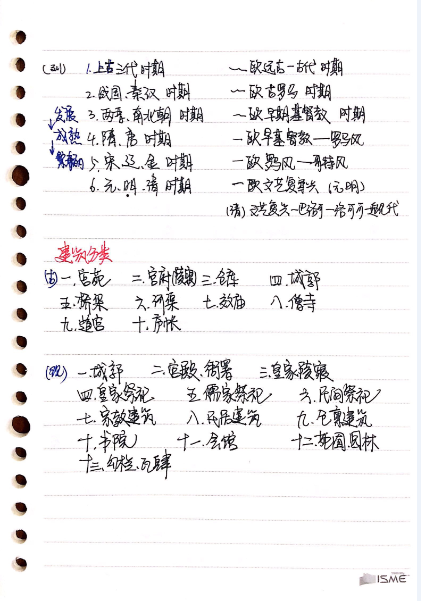 1.上古三代时期 ～欧远古—古代时期
2.战国、秦汉 时期 ～欧古罗马 时期
发展 3.两晋、南北朝 时期 ～欧早期基督教 时期
成熟 4.隋、唐 时期 —欧早基督教—罗马风
5.宋、辽、金 时期 —欧罗风—哥特风
6.元、明、清 时期 —欧文艺复兴 (元明)
(清) 文艺复兴—巴洛可—洛可可—现代
建筑分类
(古) 一.宫苑 二.官府 三.仓库 四.城郭
五.桥梁 六. 七. 八.僧寺
九.道宫 十.
(现) 一.城郭 二.宫殿、衙署 三.皇家陵寝
四.皇家祭祀 五.儒家祭祀 六.民间祭祀
七.宗教建筑 八.民居建筑 九. 建筑
十.书院 十一.会馆 十二.苑囿、园林
十三.勾栏、瓦肆
ISME